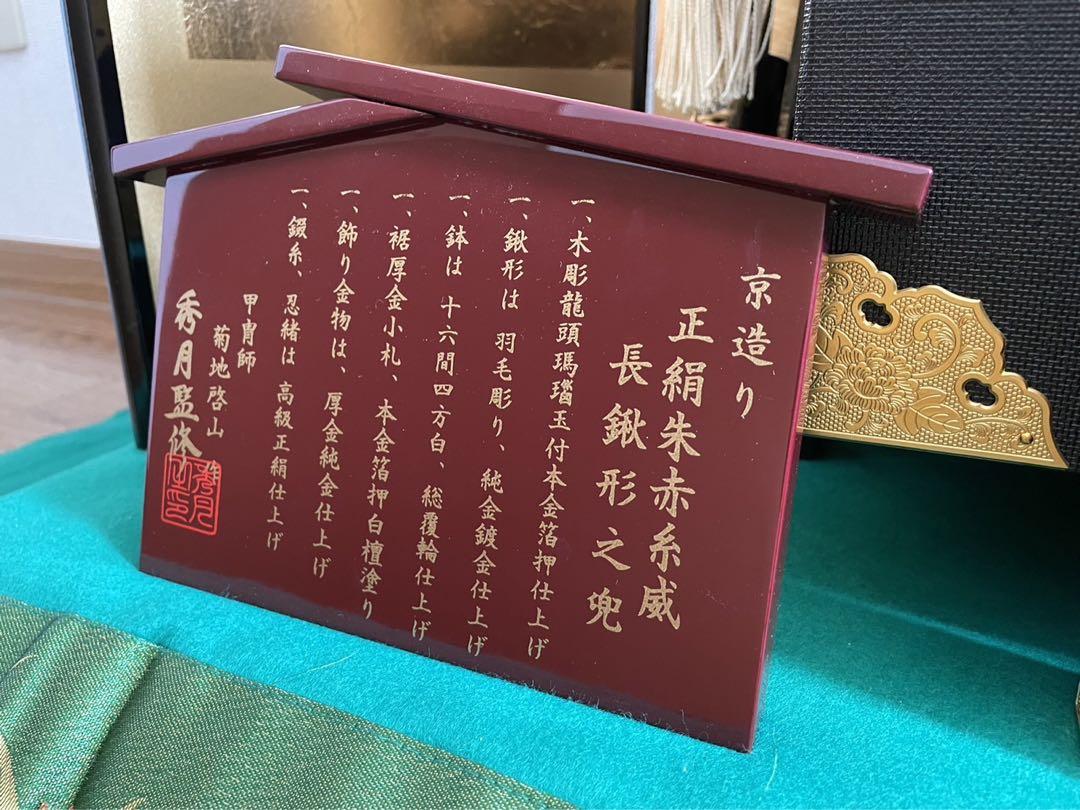 京造り
正絹朱赤糸威
長鍬形之兜
一、木彫龍頭瑪瑙玉付本金箔押仕上げ
一、鍬形は 羽毛彫り、純金鍍金仕上げ
一、鉢は 十六間四方白、総覆輪仕上げ
一、裾厚金小札、本金箔押白檀塗り
一、飾り金物は、厚金純金仕上げ
一、錣糸、忍緒は 高級正絹仕上げ
甲冑師
菊地啓山
秀月監修